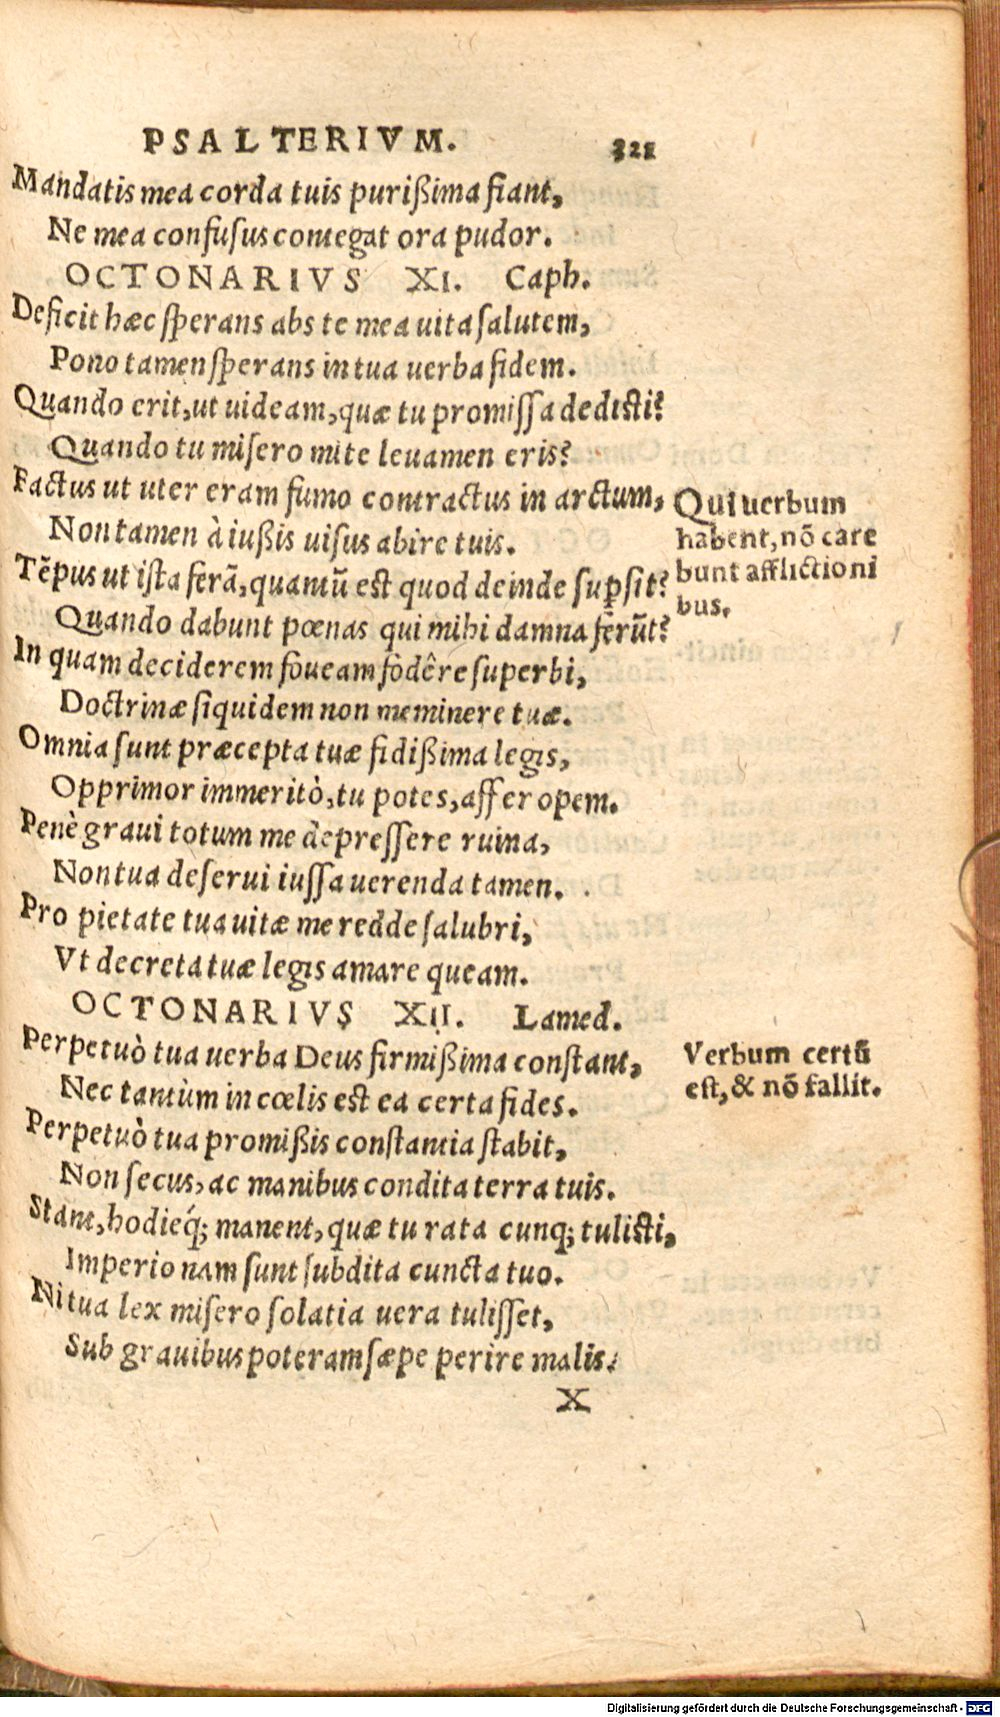 PSALTERIVM. 321
Mandatis mea corda tuis purißima fiant,
Ne mea confuſus contegat ora pudor.
OCTONARIVS XI. Caph.
Deficit hæc ſperans abs te mea uita ſalutem,
Pono tamen ſperans in tua uerba fidem.
Quando erit, ut uideam, quæ tu promiſſa dediſti?
Quando tu miſero mite leuamen eris?
Factus ut uter eram fumo contractus in arctum,
Non tamen à iußis uiſus abire tuis.
Tẽpus ut iſta ferã, quantũ eſt quod deinde ſupſit?
Quando dabunt pœnas qui mihi damna ferũt?
In quam deciderem foueam fodêre ſuperbi,
Doctrinæ ſiquidem non meminere tuæ.
Omnia ſunt præcepta tuæ fidißima legis,
Opprimor immeritò, tu potes, affer opem.
Penè graui totum me depreſſere ruina,
Non tua deſerui iuſſa uerenda tamen.
Pro pietate tua uitæ me redde ſalubri,
Vt decreta tuæ legis amare queam.
OCTONARIVS XII. Lamed.
Perpetuò tua uerba Deus firmißima conſtant,
Nec tantùm in cœlis eſt ea certa fides.
Perpetuò tua promißis conſtantia ſtabit,
Non ſecus, ac manibus condita terra tuis.
Stant, hodieq́; manent, quæ tu rata cunq; tuliſti,
Imperio nam ſunt ſubdita cuncta tuo.
Ni tua lex miſero ſolatia uera tuliſſet,
Sub grauibus poteram ſæpe perire malis.
X
Qui uerbum
habent, nõ care
bunt afflictioni
bus.
Verbum certũ
eſt, & nõ fallit.
Digitalisierung gefördert durch die Deutsche Forschungsgemeinschaft - DFG